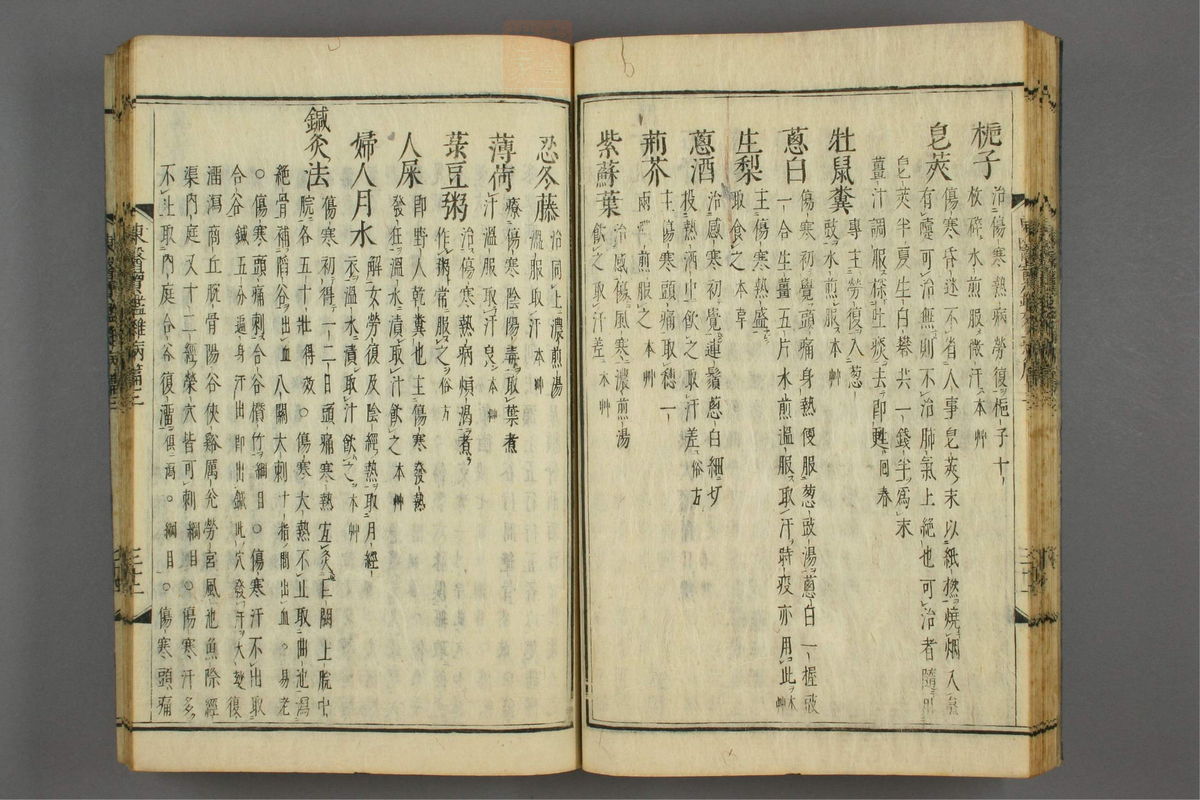 梔子
治傷寒熱病勞復梔子十
枚碎水煎服微汗 本艸
皂莢
傷寒昏迷不省人事皂莢末以紙撚燒烟入鼻
有嚏可治無則不治肺氣上絶也可治者隨用
皂莢半夏生白礬共一錢半爲末
薑汁調服探吐痰去即甦 回春
牡鼠糞
專主勞復入葱
豉水煎服 本艸
葱白
傷寒初覺頭痛身熱便服葱豉湯葱白一握豉
一合生薑五片水煎溫服取汗時疫亦用此 本艸
生梨
主傷寒熱盛
取食之 本草
葱酒
治感寒初覺連鬚葱白細切
投熱酒中飲之取汗差 俗方
荊芥
主傷寒頭痛取穗一
兩煎服之 本艸
紫蘇葉
治感傷風寒濃煎湯
飲之取汗差 本艸
忍冬藤
治同上濃煎湯
溫服取汗 本艸
薄荷
療傷寒陰陽毒取葉煮
汁溫服取汗良 本艸
菉豆粥
治傷寒熱病煩渴煮
作粥常服之 俗方
人屎
即野人乾糞也主傷寒發熱
發狂溫水漬取汁飲之 本艸
婦人月水
解女勞復及陰經熱取月經
衣溫水漬取汁飲之 本艸
鍼灸法
傷寒初得一二日頭痛寒熱宜灸巨關上脘中
脘各五十壯 得效 ○傷寒大熱不止取曲池瀉
絶骨補陷谷出血八關大刺十指間出血 ○易老
○傷寒頭痛刺合谷攅竹 綱目 ○傷寒汗不出取
合谷鍼五分遍身汗出即出鍼此穴發汗大
溜瀉商丘脘骨陽谷俠谿厲兌勞宮風池魚際經
渠內庭又十二經榮穴皆可刺 綱目 ○傷寒汗多
不止取內庭合谷復溜俱瀉 ○綱目 ○傷寒頭痛
東醫寶鑑雜病篇三